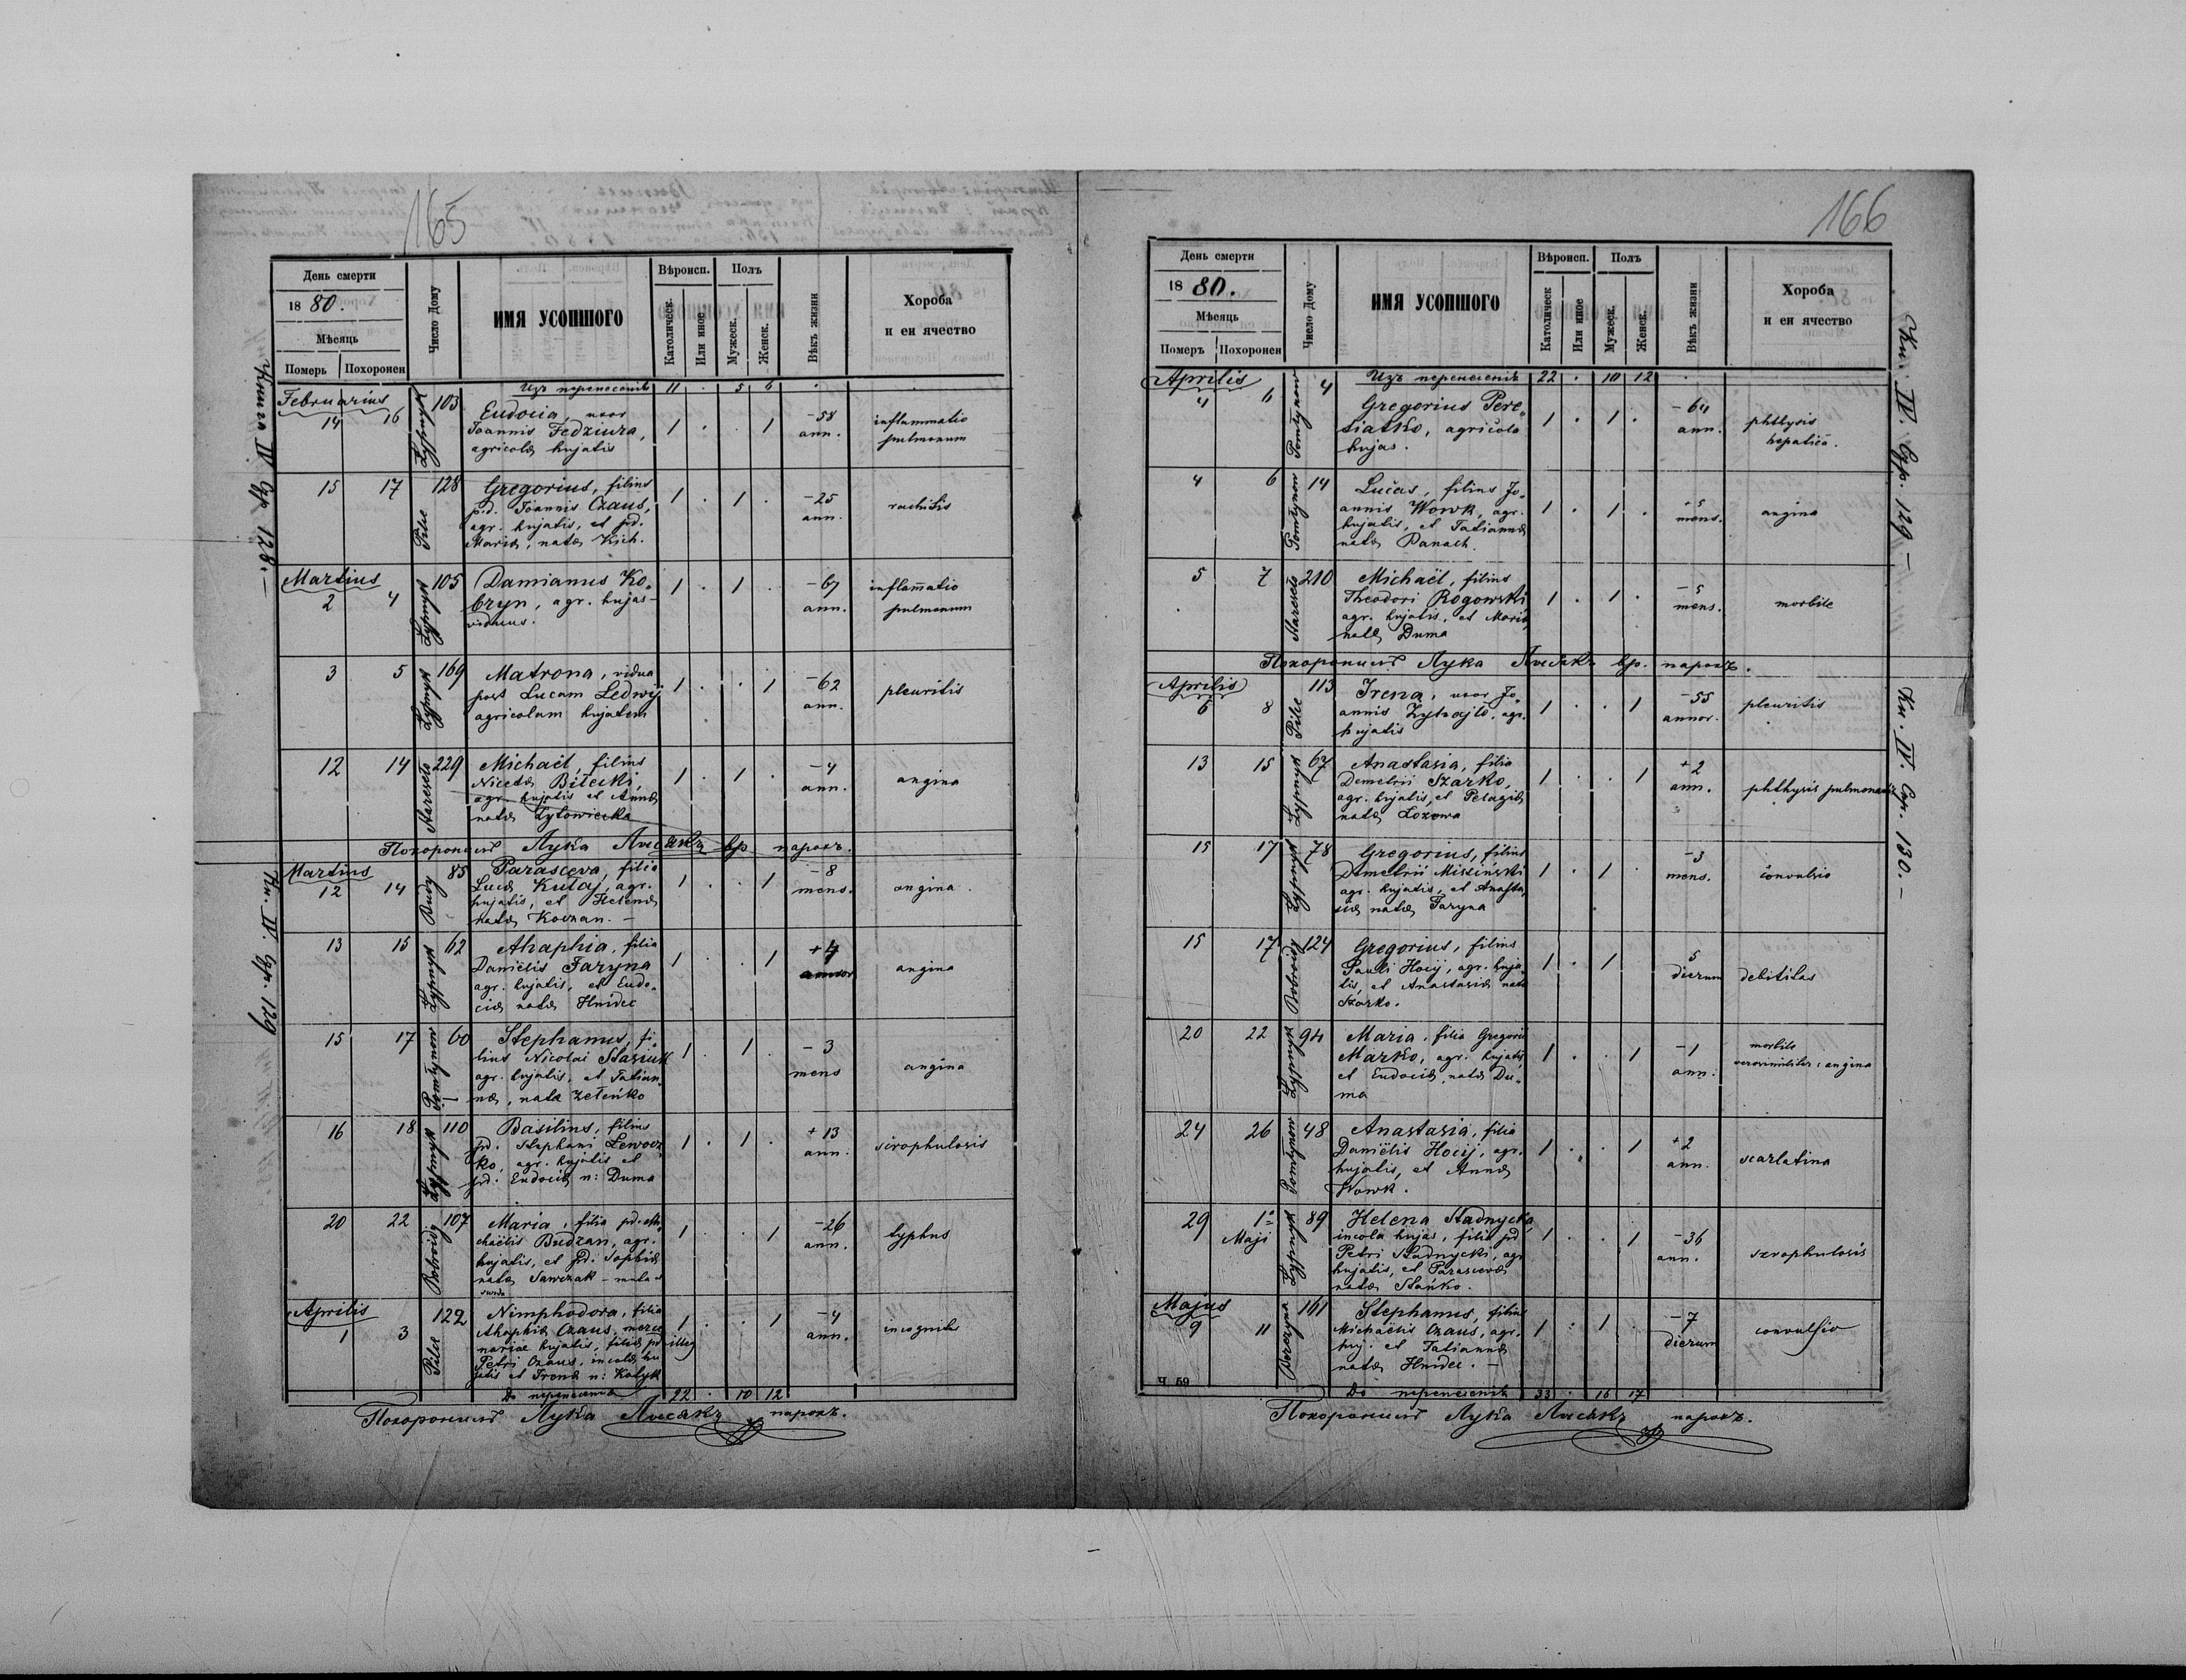 165
День смерти
18 80.
Мѣсяць
Померъ Похоронен
Число Дому
ИМЯ УСОПШОГО
Вѣроисп.
Католическ.
Или иное
Полъ
Мужеск.
Женск.
Вѣкъ жизни
Хороба
и еи ячество
Книга IV Стр. 128. —
Изъ перенесенія 11 . 5 6 .
Februarius
14 16 Lypnyk 103
Eudocia, uxor
Joannis Fedziura,
agricolæ hujatis
1 . . 1
–58
ann.
inflammatio
pulmonum
15 17 Piłe 128
Gregorius, filius
p.d. Joannis Czaus,
agr. hujatis, et pd.
Mariæ, natæ Kich.
1 . 1 .
–25
ann.
rachitis
Martius
2 4 Lypnyk 105
Damianus Ko-
bryn, agr. hujas –
viduus.
1 . 1 .
–67
ann.
inflam̄atio
pulmonum
3 5 Lypnyk 169
Matrona, vidua
post Lucam Ledwij
agricolam hujatem
1 . . 1
–62
ann.
pleuritis
12 14 Stareseło 229
Michaël, filius
Nicetæ Biłecki,
agr. hujatis et Annæ
natæ Lytowiecka
1 . 1 .
–4
ann.
angina
Похоронилъ Лука Лисакъ вр. парохъ.
Кн. IV. Стр. 129
Martius
12 14 Rudy 85
Parasceva, filia
Lucæ Kułaj, agr.
hujatis, et Helenæ
natæ Koczan. –
1 . . 1
–8
mens.
angina.
13 15 Lypnyk 62
Ahaphia, filia
Daniëlis Faryna
agr. hujatis, et Eudo-
ciæ natæ Hnidec
1 . . 1
+4
annor
angina
15 17 Pomłynow 60
Stephanus, fi-
lius Nicolai Stasiuk
agr. hujatis, et Tatian-
næ, natæ Zełeńko
1 . 1 .
– 3
mens
angina
16 18 Lypnyk 110
Basilius, filius
pd. Stephani Lewocz
ko, agr. hujatis et
pd. Eudociæ n: Duma
1 . 1 .
+ 13
ann.
scrophulosis
20 22 Bobroidy 107
Maria, filia pd. Mi-
chaëlis Budzan, agr.
hujatis, et pd. Sophiæ
natæ Sawczak – muta et
surda
1 . . 1
–26
ann.
typhus
Aprilis
1 3 Piłe 122
Nimphodora, filia
Ahaphiæ Czaus, merce
nariae hujatis, filiæ pd
Petri Czaus, incolæ hu
jatis et Irenæ n: Kotyk
1 illeg . . 1
–4
ann.
incognitus
До перенесенія 22 . 10 12
Похоронилъ Лука Лисакъ парохъ.
166
День смерти
18 80.
Мѣсяць
Померъ Похоронен
Число Дому
ИМЯ УСОПШОГО
Вѣроисп.
Католическ
Или иное
Полъ
Мужеск.
Женск.
Вѣкъ жизни
Хороба
и еи ячество
Кн. IV. Стр. 129 —
Изъ перенесенія 22 . 10 12 .
Aprilis
4 6 Pomłynow 4
Gregorius Pere-
siatko, agricola
hujas.
1 . 1 .
–64
ann.
phthysis
hepatica.
4 6 Pomłynow 14
Lucas, filius Jo-
annis Wowk, agr.
hujatis, et Tatiannæ
natæ Panach.
1 . 1 .
+5
mens.
angina
5 7 Stareseło 210
Michaël, filius
Theodori Rogowski
agr. hujatis, et Mariæ
natæ Duma
1 . 1 .
–5
mens.
morbile
Похоронилъ Лука Лисакъ вр. парохъ.
Кн. IV. Стр. 130. —
Aprilis
6 8 Piłe 113
Irena, uxor Jo-
annis Zytrajło, agr.
hujatis
1 . . 1
–55
annor.
pleuritis
13 15 Lypnyk 67
Anastasia, filia
Demetrii Szarko,
agr. hujatis, et Pelagiæ
natæ Lozowa
1 . . 1
+2
ann.
phthysis pulmonalis
15 17 Lypnyk 78
Gregorius, filius
Demetrii Missiński
agr. hujatis, et Anasta
siæ natæ Faryna
1 . 1 .
–3
mens.
convulsio
15 17 Bobroidy 124
Gregorius, filius
Pauli Hocij, agr. huja-
tis, et Anastasiæ natæ
Szarko.
1 . 1
5
dierum
debilitas
20 22 Lypnyk 94
Maria, filia Gregorii
Marko, agr. hujatis
et Eudociæ, natæ Du-
ma
1 . . 1
–1
ann.
morbile
verosimiliter: angina
24 26 Pomłynow 48
Anastasia, filia
Daniëlis Hocij, agr.
hujatis, et Annæ
Wowk.
1 . . 1
+2
ann.
scarlatina
29 1ª Maji Lypnyk 89
Helena Stadnycka
incola hujas, filia pd
Petri Stadnycki, agr
hujatis, et Parascevæ
natæ Stańko.
1 . . 1
–36
ann.
scrophulosis
Majus
9 11 Berezyna 161
Stephanus, filius
Michaëlis Czaus, agr.
huj. et Tatiannæ
natæ Hnidec. –
1 . 1 .
–7
dierum
convulsio
Ч 59
До перенесенія 33 . 16 17
Похоронилъ Лука Лисакъ парохъ.